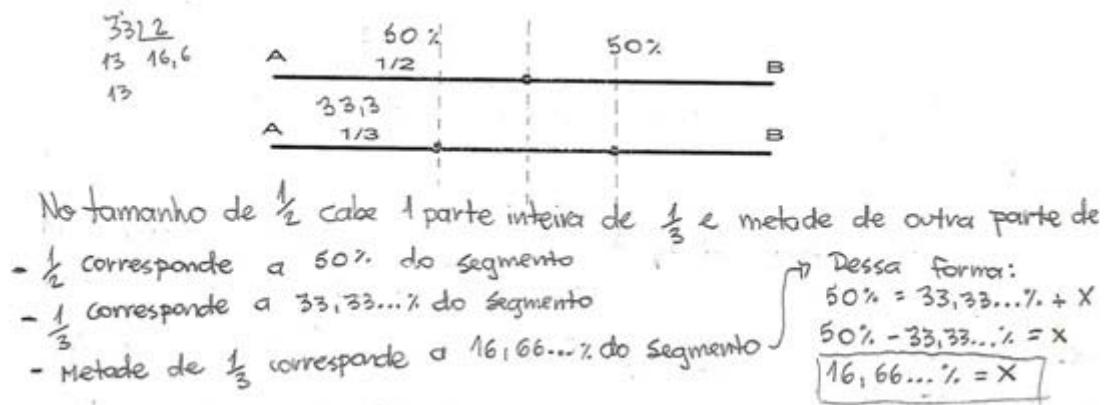 33 2
13 16,6
13
50% 50%
A 1/2 B
33,3
A 1/3 B
No tamanho de 1/2 cabe 1 parte inteira de 1/3 e metade de outra parte de
- 1/2 corresponde a 50% do segmento
- 1/3 corresponde a 33,33...% do segmento
- Metade de 1/3 corresponde a 16,66...% do segmento
Dessa forma:
50% = 33,33...% + X
50% - 33,33...% = X
16,66...% = X